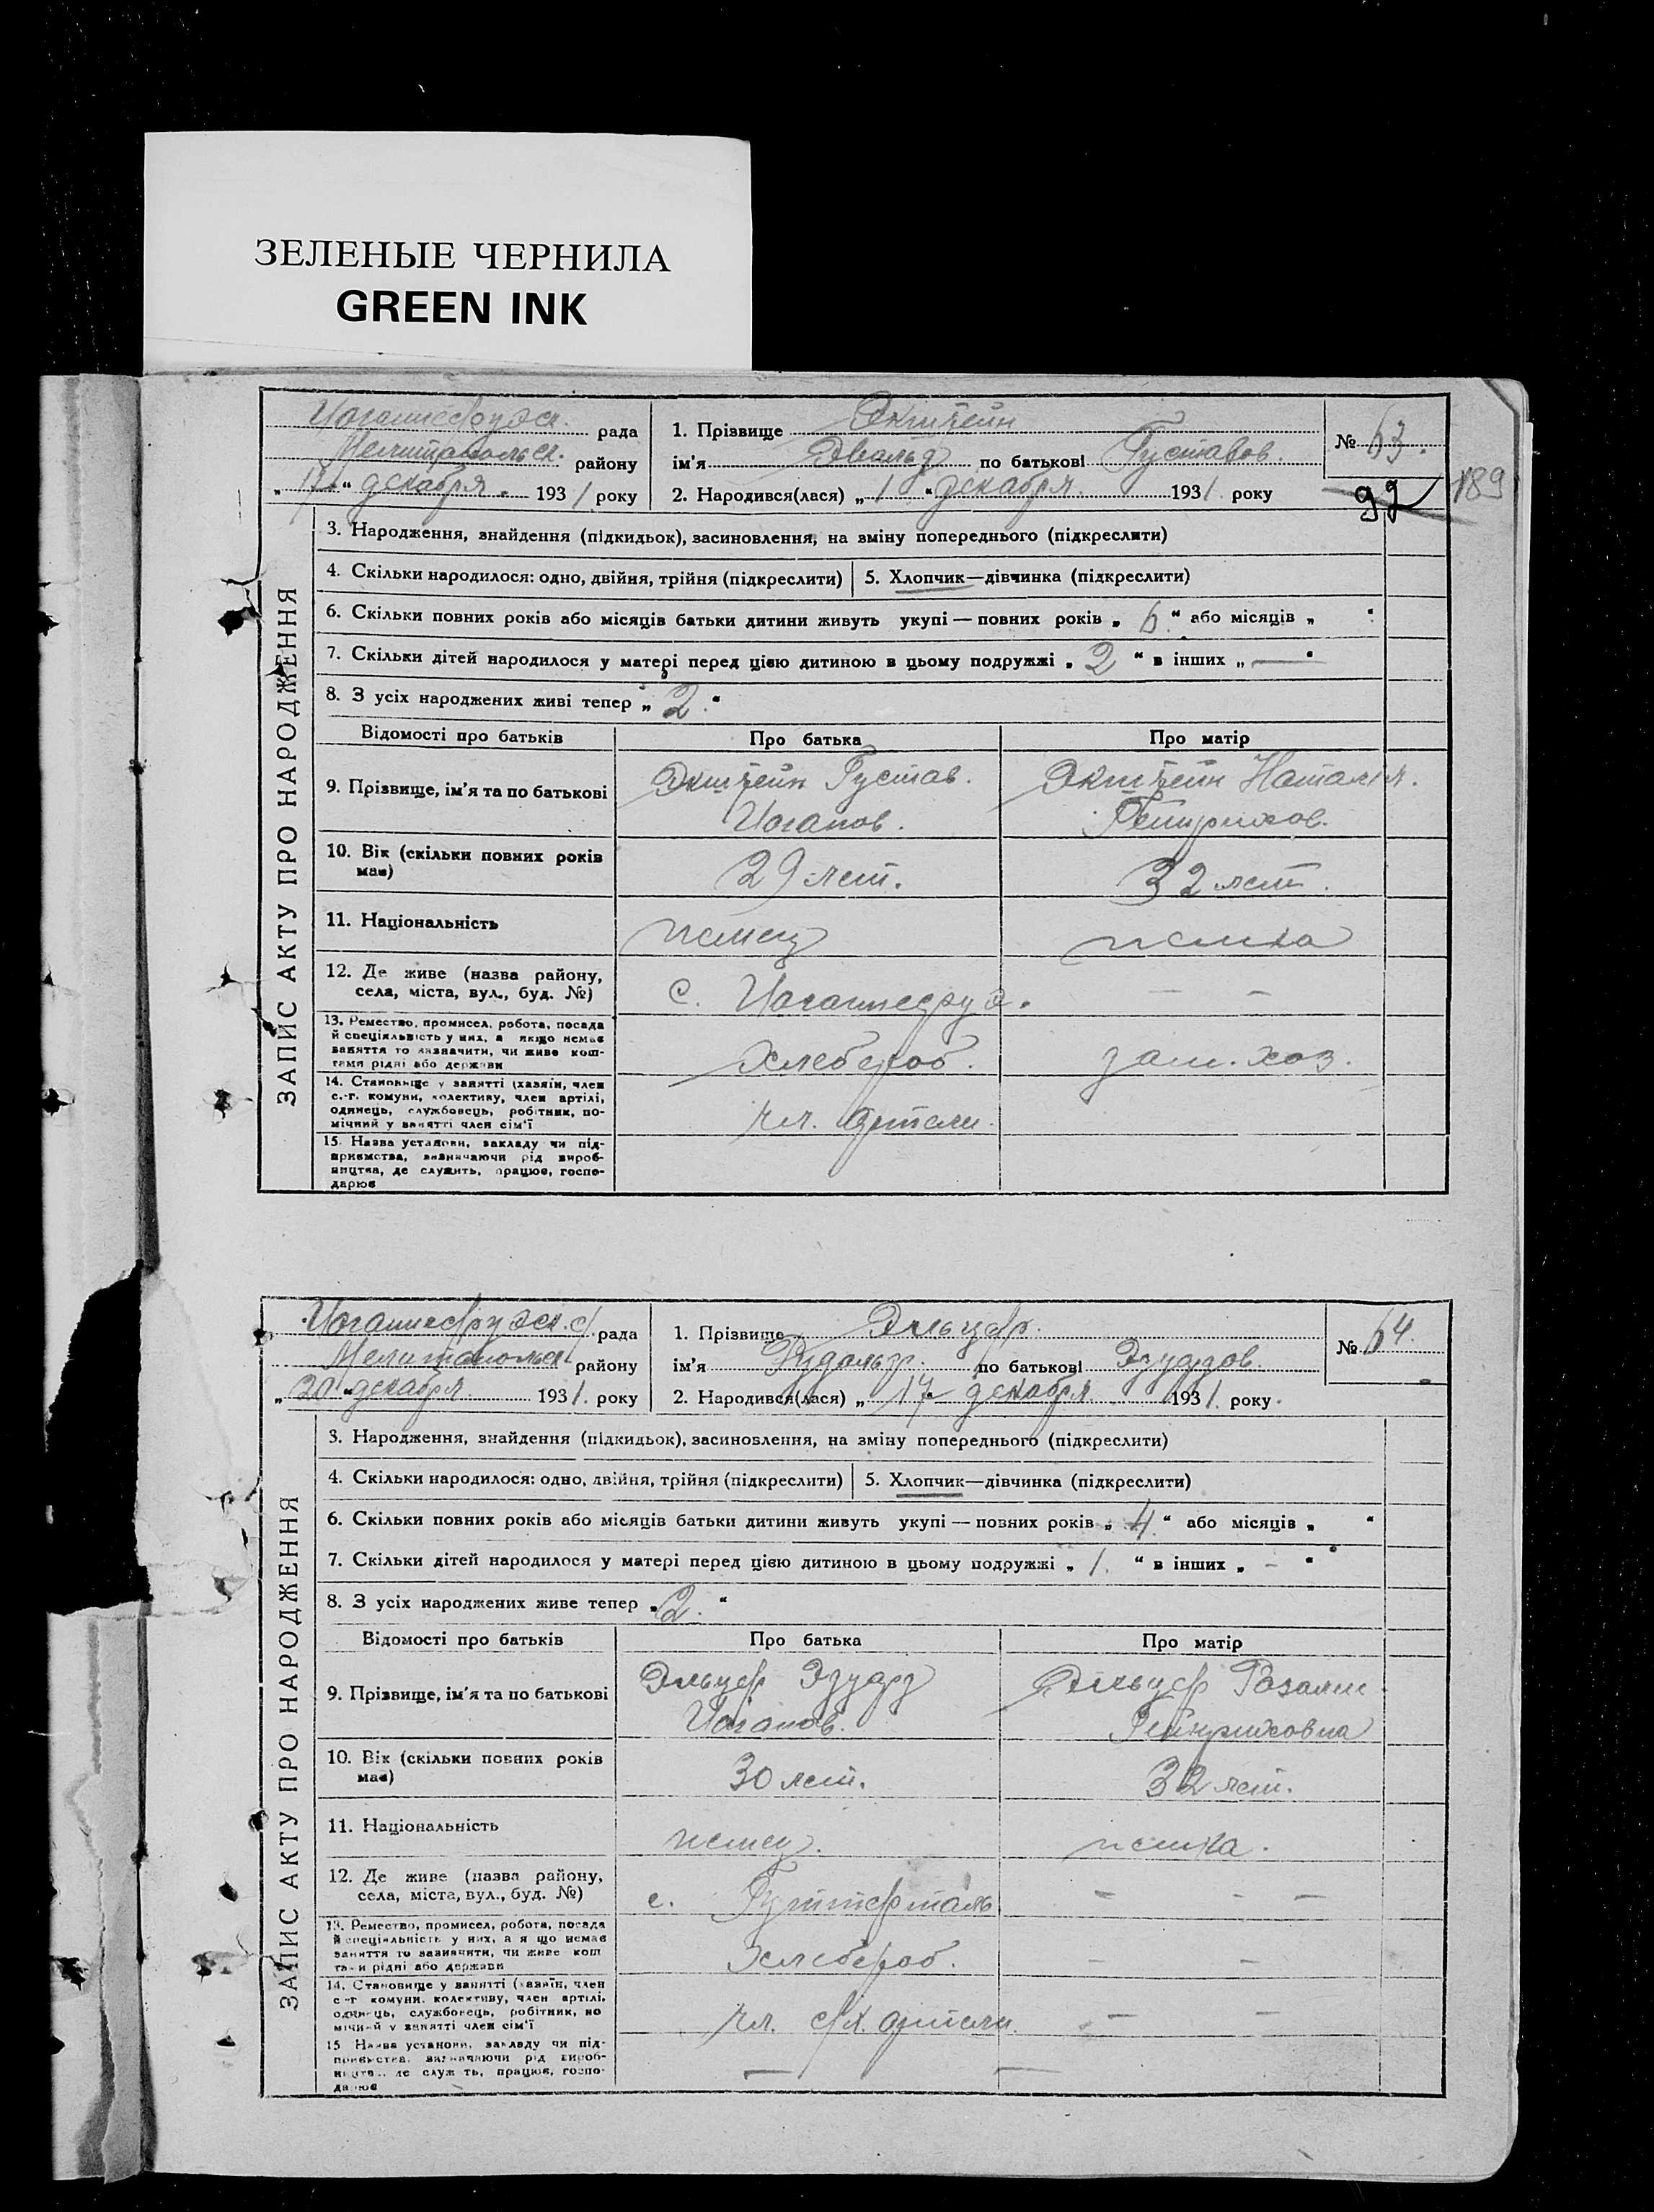 ЗЕЛЕНЫЕ ЧЕРНИЛА
GREEN INK
Иоганнесрудск. рада
Мелитопольск. району
„17“ декабря 1931 року
1. Прізвище Экштейн
ім'я Эвальд по батькові Густавов.
2. Народився(лася) „1“ декабря 1931 року
№ 63.
92
189
ЗАПИС АКТУ ПРО НАРОДЖЕННЯ
3. Народження, знайдення (підкидьок), засиновлення, на зміну попереднього (підкреслити)
4. Скільки народилося: одно, двійня, трійня (підкреслити) 5. Хлопчик—дівчинка (підкреслити)
6. Скільки повних років або місяців батьки дитини живуть укупі — повних років „6.“ або місяців „ “
7. Скільки дітей народилося у матері перед цією дитиною в цьому подружжі „2“ в інших „—“
8. З усіх народжених живі тепер „2.“
Відомості про батьків Про батька Про матір
9. Прізвище, ім'я та по батькові
Экштейн Густав. Экштейн Наталия.
Иоганов. Генрихов.
10. Вік (скільки повних років має) 29 лет. 32 лет.
11. Національність немец немка
12. Де живе (назва району, села, міста, вул., буд. №)
с. Иоганнесруэ. — —
13. Ремество, промисел, робота, посада
й спеціяльність у них, а якщо немає
заняття то зазначити, чи живе кош-
тами рідні або держави
Хлебороб. дом. хоз.
14. Становище у занятті (хазяїн, член
с.-г. комуни, колективу, член артілі,
одинець, службовець, робітник, по-
мічний у занятті член сім'ї
чл. артели.
15. Назва установи, закладу чи під-
приємства, визначаючи рід вироб-
ництва, де служить, працює, госпо-
дарює
Иоганнесрудск. с/ рада
Мелитопольск. району
„20“ декабря 1931. року
1. Прізвище Эльцер.
ім'я Рудольф. по батькові Эдуардов.
2. Народився(лася) „17“ декабря 1931. року.
№ 64.
ЗАПИС АКТУ ПРО НАРОДЖЕННЯ
3. Народження, знайдення (підкидьок), засиновлення, на зміну попереднього (підкреслити)
4. Скільки народилося: одно, двійня, трійня (підкреслити) 5. Хлопчик—дівчинка (підкреслити)
6. Скільки повних років або місяців батьки дитини живуть укупі — повних років „4.“ або місяців „ “
7. Скільки дітей народилося у матері перед цією дитиною в цьому подружжі „1.“ в інших „-“
8. З усіх народжених живе тепер „2.“
Відомості про батьків Про батька Про матір
9. Прізвище, ім'я та по батькові
Эльцер Эдуард Эльцер Розалия
Иоганов. Генриховна
10. Вік (скільки повних років має) 30 лет. 32 лет.
11. Національність немец. немка.
12. Де живе (назва району, села, міста, вул., буд. №)
с. Гуттерталь — — —
13. Ремество, промисел, робота, посада
й спеціяльність у них, а якщо немає
заняття то зазначити, чи живе кош
тами рідні або держави
Хлебороб. — —
14. Становище у занятті (хазяїн, член
с-г комуни, колективу, член артілі,
одинець, службовець, робітник, по
мічний у занятті член сім'ї
чл. с/х. артели. — —
15 Назва установи, закладу чи під-
приємства, визначаючи рід вироб-
ництва, де служить, працює, госпо-
дарює
— —